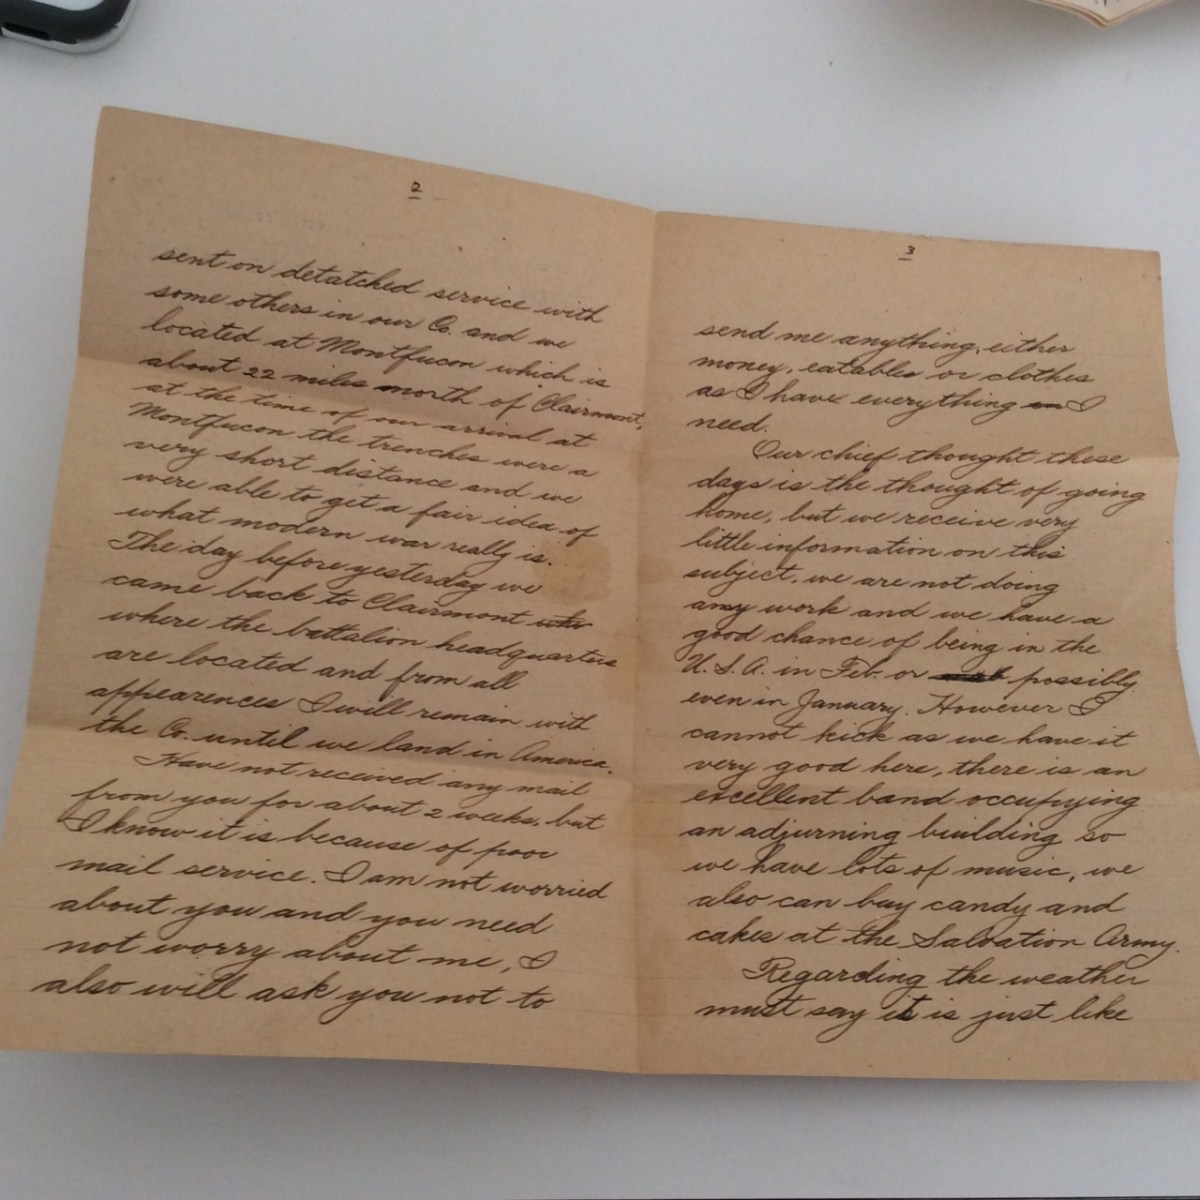 2
sent on detatched service with
some others in our Co. and we
located at Montfucon which is
about 22 miles north of Clairmont,
at the time of our arrival at
Montfucon the trenches were a
very short distance and we
were able to get a fair idea of
what modern war really is.
The day before yesterday we
came back to Clairmont
where the battalion headquarters
are located and from all
appearences I will remain with
the Co. until we land in America.
Have not received any mail
from you for about 2 weeks, but
I know it is because of poor
mail service. I am not worried
about you and you need
not worry about me, I
also will ask you not to
3
send me anything, either
money, eatables or clothes
as I have everything I
need.
Our chief thought these
days is the thought of going
home, but we receive very
little information on this
subject, we are not doing
any work and we have a
good chance of being in the
U. S. A. in Feb. or possibly
even in January. However I
cannot kick as we have it
very good here, there is an
excellent band occupying
an adjurning building so
we have lots of music, we
also can buy candy and
cakes at the Salvation Army.
Regarding the weather
must say it is just like